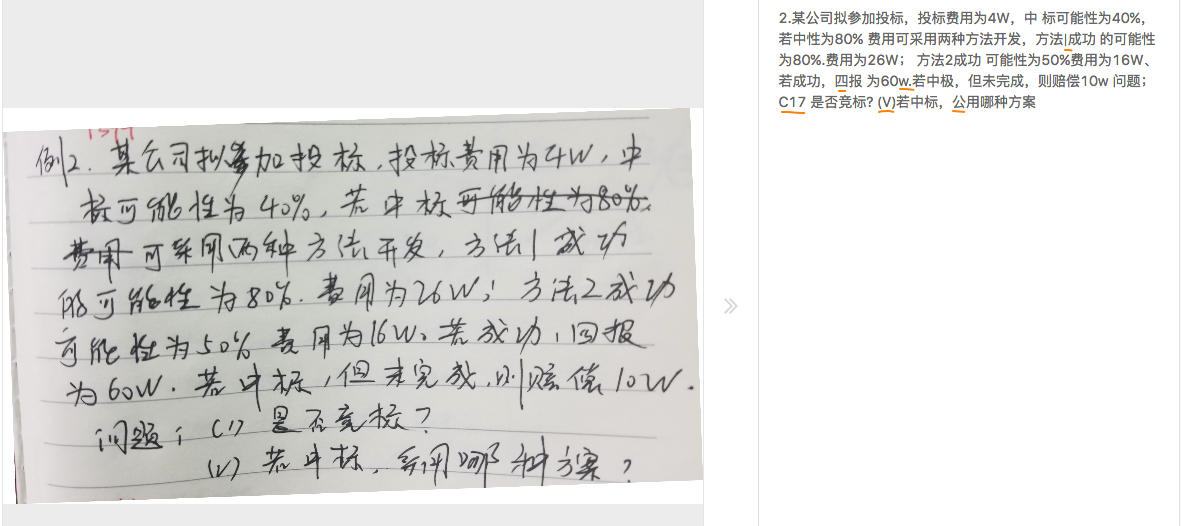 例2. 某公司拟参加投标，投标费用为4W，中
标可能性为40%，若中标可能性为80%.
费用可采用两种方法开发，方法1成功
的可能性为80%.费用为26W；方法2成功
可能性为50%费用为16W。若成功，回报
为60W.若中标，但未完成，则赔偿10W.
问题；(1) 是否竞标？
(2) 若中标，采用哪种方案？
2.某公司拟参加投标，投标费用为4W，中 标可能性为40%，
若中性为80% 费用可采用两种方法开发，方法|成功 的可能性
为80%.费用为26W； 方法2成功 可能性为50%费用为16W、
若成功，四报 为60w.若中极，但未完成，则赔偿10w 问题；
C17 是否竟标? (V)若中标，公用哪种方案